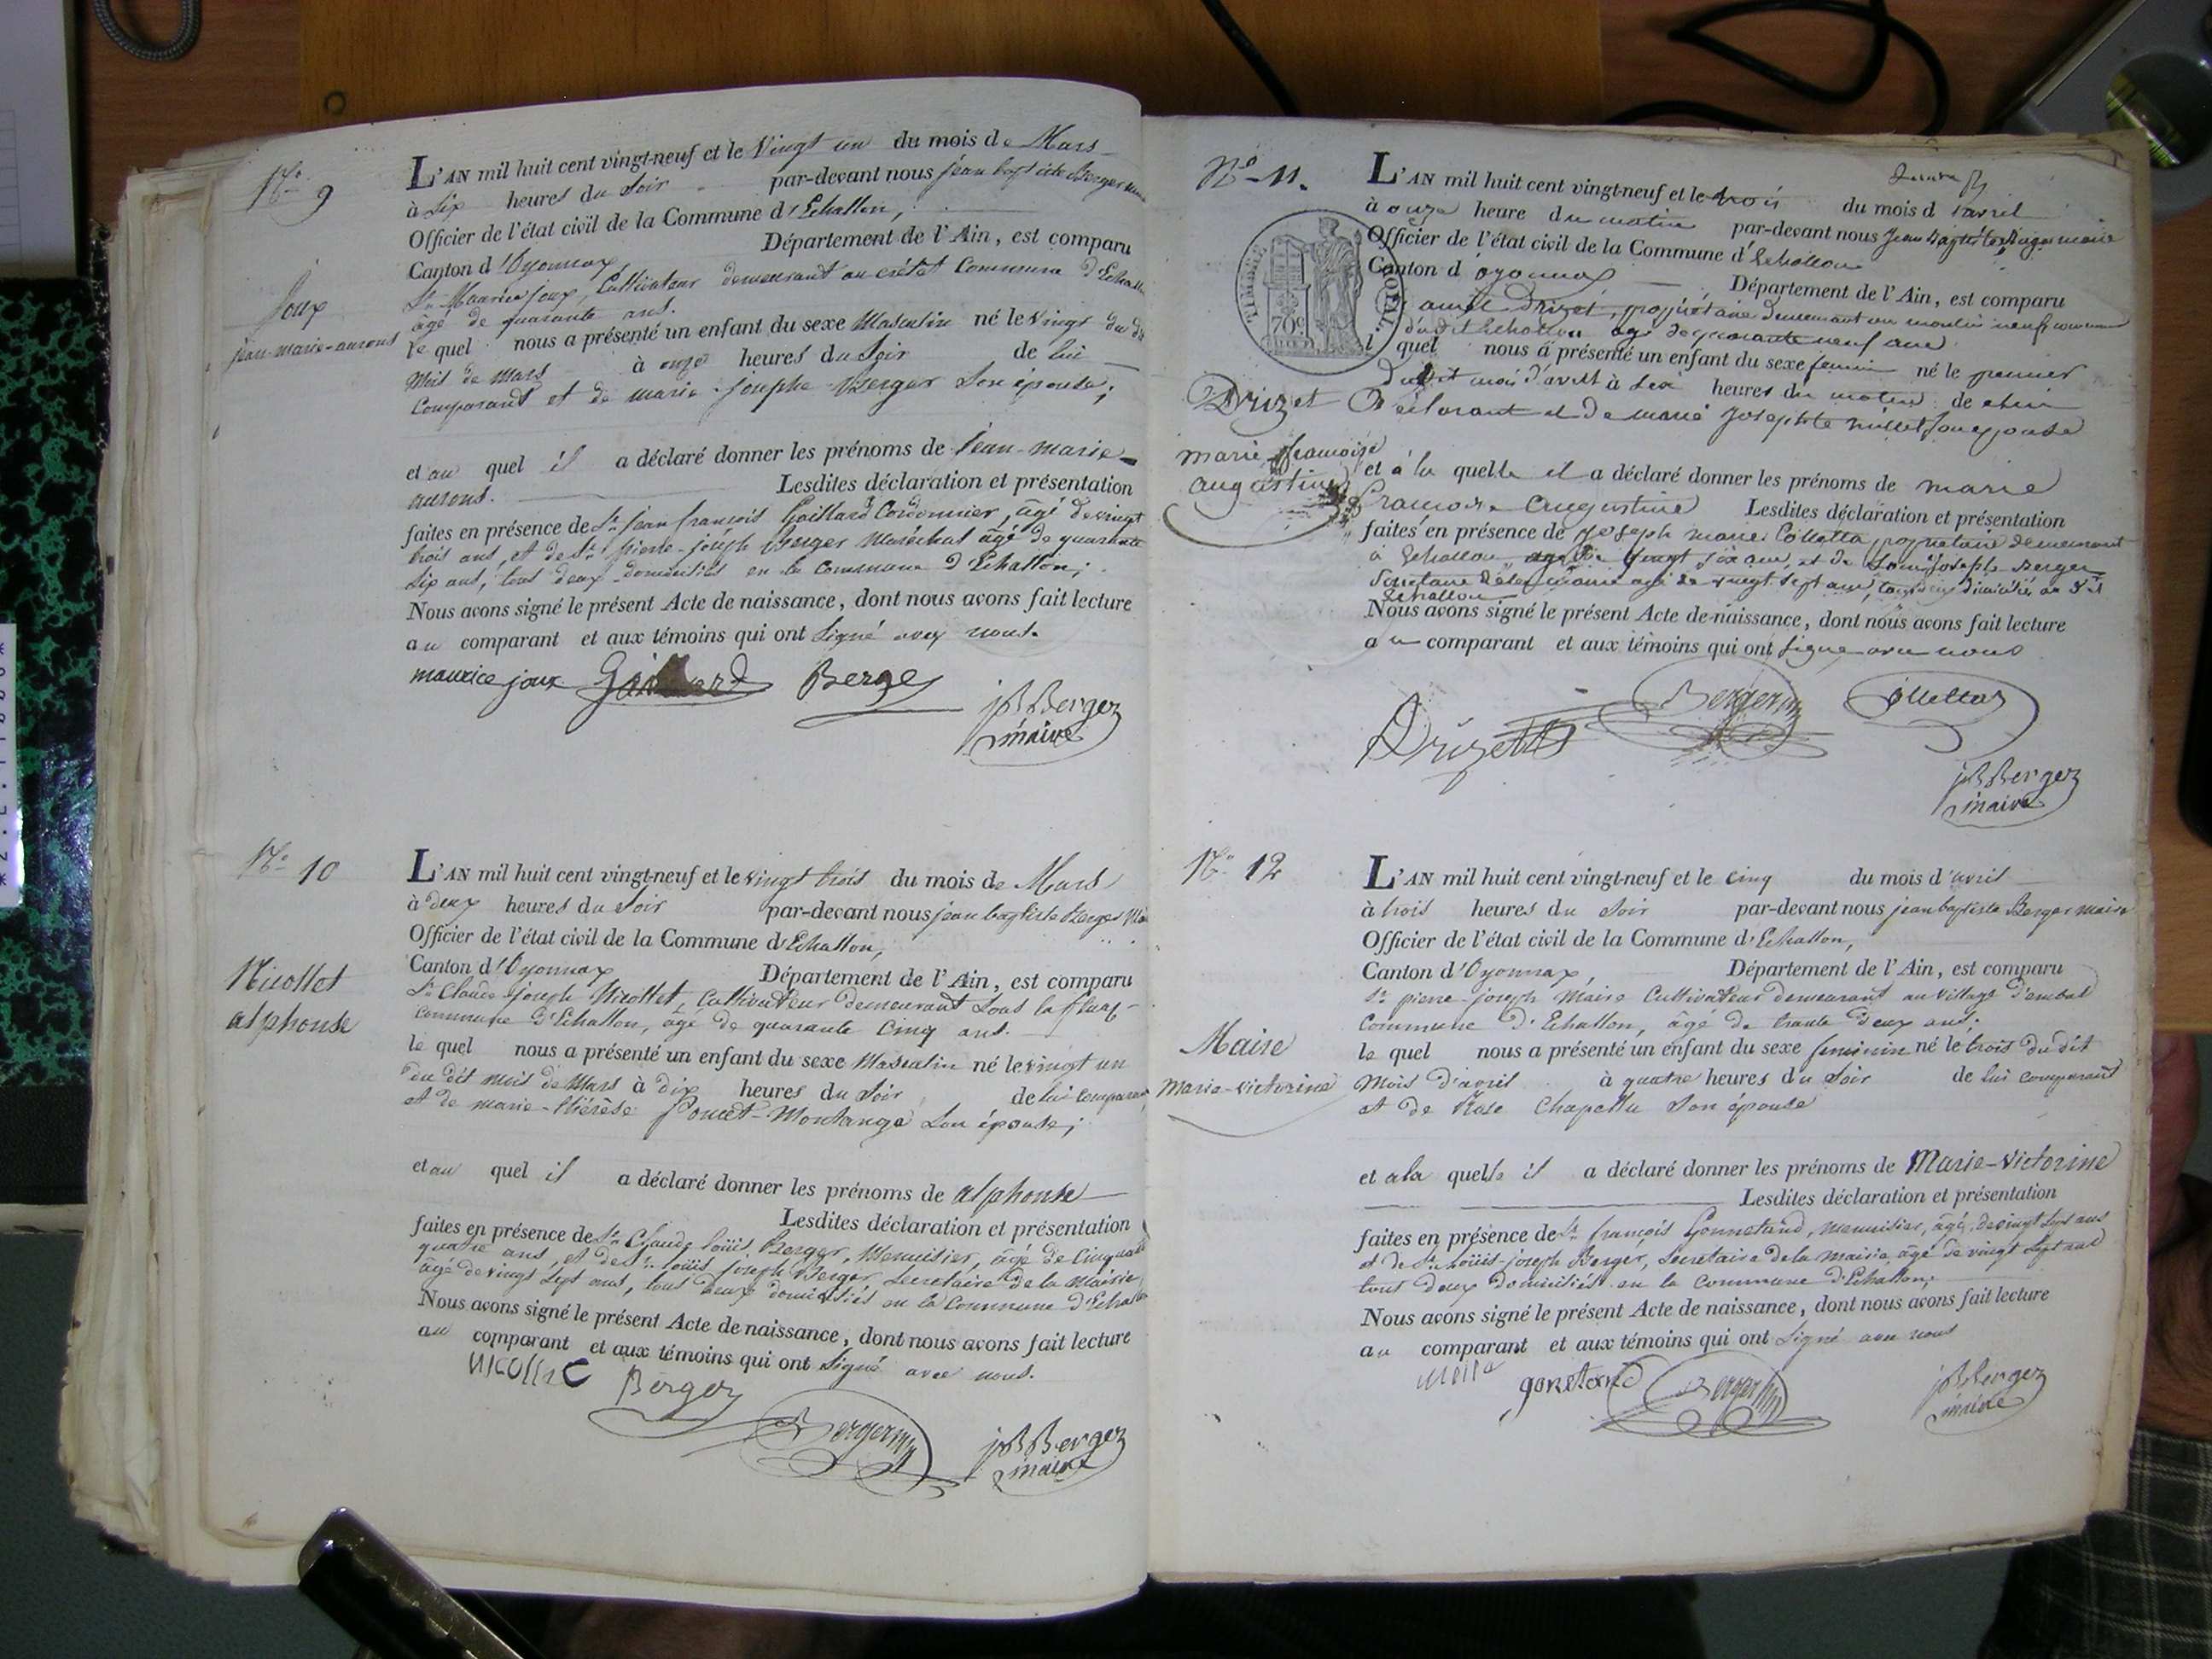 No 9
Joux
jean-marie-aurons
L'AN mil huit cent vingt-neuf et le Vingt un du mois de Mars
à Six heures du Soir par-devant nous jean baptiste Berger
Officier de l'état civil de la Commune d'Echallon,
Canton d'Oyonnax, Département de l'Ain, est comparu
Sr Maurice joux, Cultivateur demeurant au crétet Commune d'Echallon
âgé de quarante ans.
le quel nous a présenté un enfant du sexe Masculin né le vingt du dit
Mois de Mars à onze heures du Soir de lui
Comparant et de marie-josephe Berger Son épouse;
et au quel il a déclaré donner les prénoms de Jean-marie-
aurons. Lesdites déclaration et présentation
faites en présence de Sr jean françois Gaillard Cordonnier, âgé de vingt
trois ans, et de Sr pierre-joseph Berger Maréchal âgé de quarante
six ans, tous deux domiciliés en la Commune d'Echallon;
Nous avons signé le présent Acte de naissance, dont nous avons fait lecture
au comparant et aux témoins qui ont Signé avec nous.
maurice joux Gaillard Berger
jB Berger
maire
No 10
Nicollet
alphonse
L'AN mil huit cent vingt-neuf et le vingt trois du mois de Mars
à deux heures du Soir par-devant nous jean baptiste Berger
Officier de l'état civil de la Commune d'Echallon,
Canton d'Oyonnax Département de l'Ain, est comparu
Sr Claude-joseph Nicollet, Cultivateur demeurant Sous la
Commune d'Echallon, âgé de quarante Cinq ans.
le quel nous a présenté un enfant du sexe Masculin né le vingt un
du dit mois de Mars à dix heures du Soir de lui comparant
et de marie-thérèse Poncet-Montange Son épouse;
et au quel il a déclaré donner les prénoms de alphonse
Lesdites déclaration et présentation
faites en présence de Sr Claude louis Berger, Menuisier, âgé de Cinquante
quatre ans, et de Sr louis joseph Berger Secretaire de la Mairie
âgé de vingt Sept ans, tous deux domiciliés en la Commune d'Echallon
Nous avons signé le présent Acte de naissance, dont nous avons fait lecture
au comparant et aux témoins qui ont Signé avec nous.
Nicollet Berger
Berger
jB Berger
maire
No 11.
TIMBRE ROYAL
70c
Drizet
marie françoise
augustine
L'AN mil huit cent vingt-neuf et le trois du mois d'avril
à onze heure du matin par-devant nous Jean Baptiste Berger maire
Officier de l'état civil de la Commune d'Echallon
Canton d'oyonnax Département de l'Ain, est comparu
Drizet, propriétaire demeurant au moulin neuf commune
dudit Echallon agé de quarante neuf ans
l quel nous a présenté un enfant du sexe feminin né le premier
dudit mois d'avril à Six heures du matin de
Déclarant et de marie Josephte millet Son epouse
et à la quelle il a déclaré donner les prénoms de marie
francoise augustine Lesdites déclaration et présentation
faites en présence de joseph marie Colletta propriétaire demeurant
à Echallon agé de vingt Six ans, et de Louis Joseph Berger
Secretaire de la mairie agé de vingt Sept ans,
Echallon
Nous avons signé le présent Acte de naissance, dont nous avons fait lecture
au comparant et aux témoins qui ont Signe avec nous
Drizet Berger Collettaz
jB Berger
maire
No 12
Maire
Marie-Victorine
L'AN mil huit cent vingt-neuf et le Cinq du mois d'avril
à trois heures du Soir par-devant nous jean baptiste Berger Maire
Officier de l'état civil de la Commune d'Echallon,
Canton d'Oyonnax, Département de l'Ain, est comparu
Sr pierre-joseph Maire Cultivateur demeurant au village
Commune d'Echallon, âgé de trente deux ans;
le quel nous a présenté un enfant du sexe feminin né le trois du dit
Mois d'avril à quatre heures du Soir de lui comparant
et de Rose Chapellu Son épouse
et a la quelle il a déclaré donner les prénoms de Marie-Victorine
Lesdites déclaration et présentation
faites en présence de Sr françois Gonnetand, Menuisier, âgé de vingt Sept ans
et de Sr Louis-joseph Berger, Secretaire de la Mairie âgé de vingt Sept ans
tous deux domiciliés en la Commune d'Echallon;
Nous avons signé le présent Acte de naissance, dont nous avons fait lecture
au comparant et aux témoins qui ont Signé avec nous
gonetand Berger
jB Berger
maire